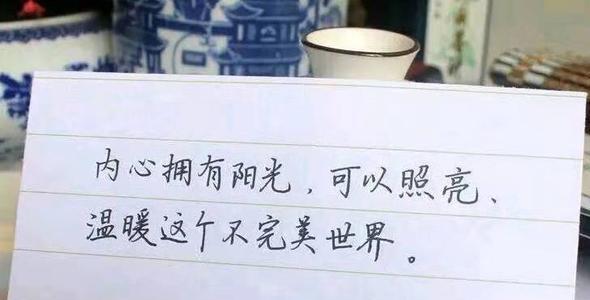 内心拥有阳光，可以照亮、
温暖这个不完美世界。